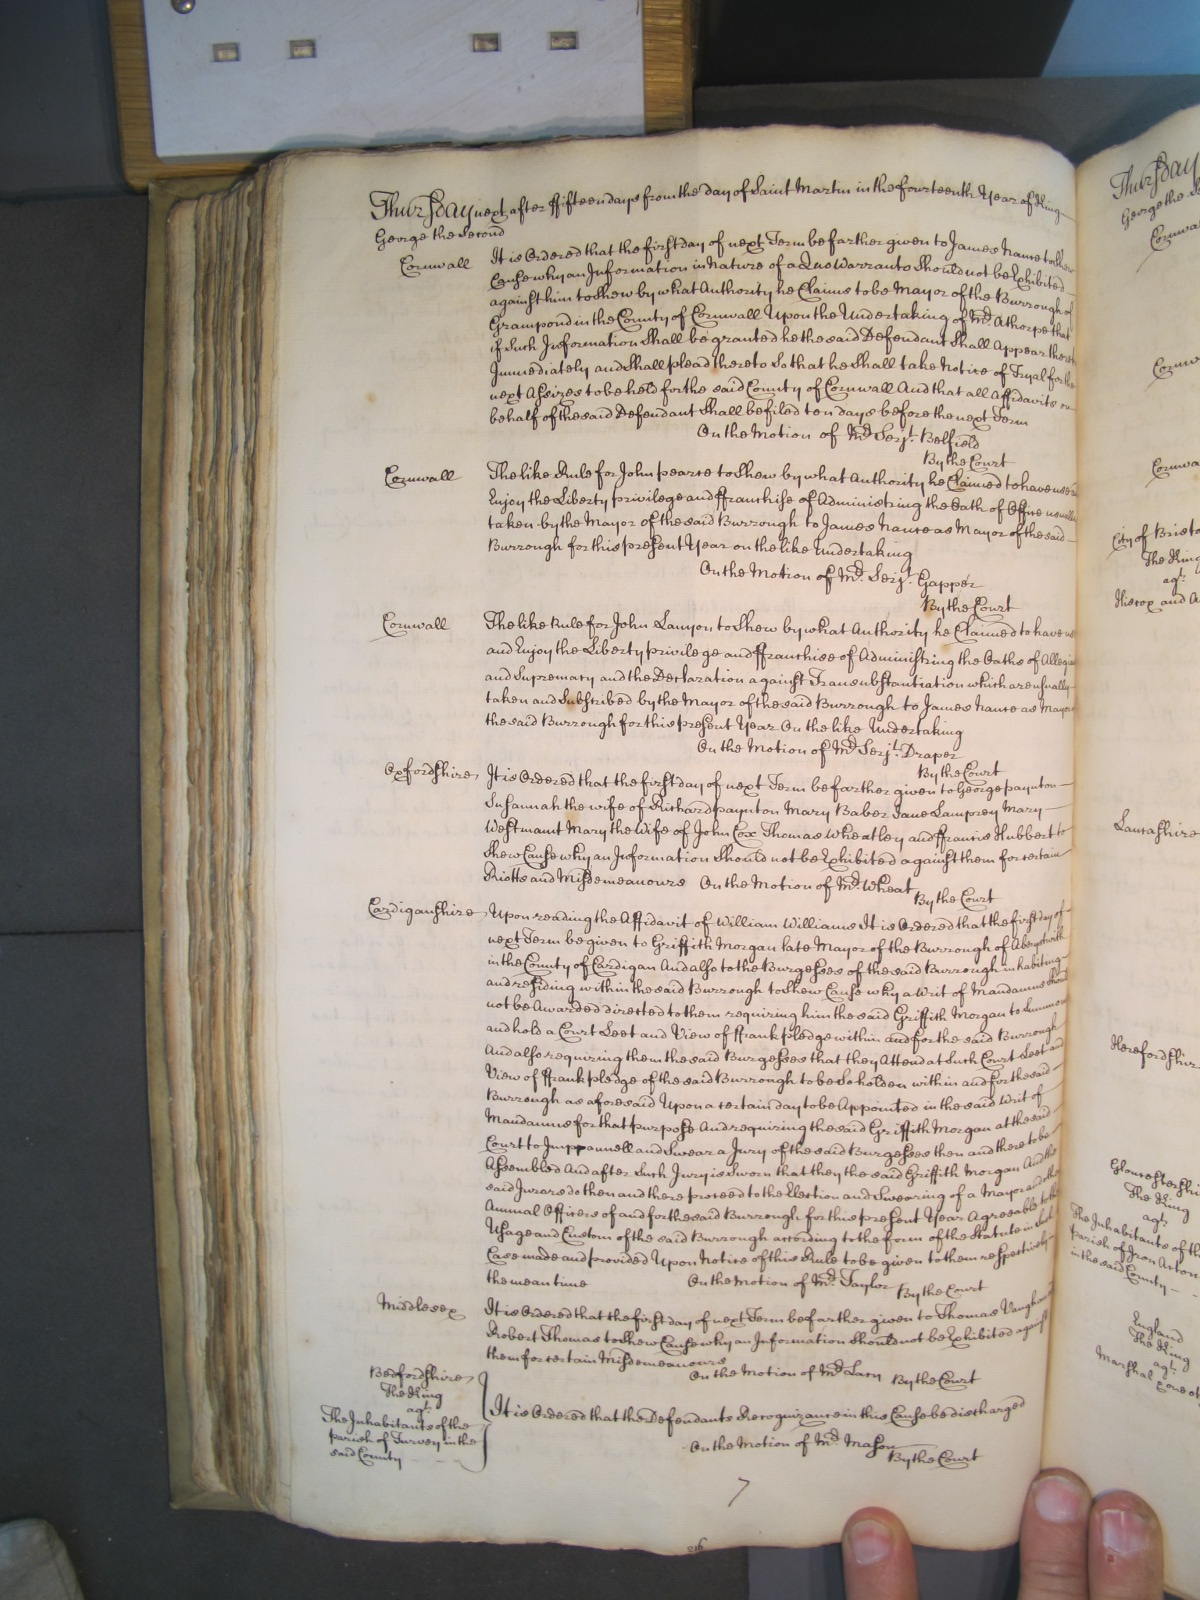 Thursday next after fifteen days from the day of Saint Martin in the fourteenth Year of King
George the Second
Cornwall It is Ordered that the first day of next Term be farther given to James Nance to Shew
Cause why an Information in Nature of a Quo Warranto Should not be Exhibited
against him to Shew by what Authority he Claims to be Mayor of the Burrough of
Grampond in the County of Cornwall Upon the Undertaking of Mr. Athorpe that
if Such Information Shall be granted he the said Defendant Shall Appear thereto
Immediately and Shall plead thereto So that he Shall take Notice of Tryal for the
next Assizes to be held for the said County of Cornwall And that all Affidavits on
behalf of the said Defendant Shall be filed ten days before the next Term
On the Motion of Mr. Serjt. Belfield
By the Court
Cornwall The like Rule for John pearce to Shew by what Authority he Claimed to have used
Enjoy the Liberty privilege and ffranchise of Administring the Oath of Office usually
taken by the Mayor of the said Burrough to James Nance as Mayor of the said
Burrough for this present Year on the like Undertaking
On the Motion of Mr. Serjt. Gapper
By the Court
Cornwall The like Rule for John Lanyon to Shew by what Authority he Claimed to have
and Enjoy the Liberty privilege and ffranchise of Administring the Oaths of
and Supremacy and the Declaration against Transubstantiation which are usually
taken and Subscribed by the Mayor of the said Burrough to James Nance as Mayor
the said Burrough for this present Year On the like Undertaking
On the Motion of Mr. Serjt. Draper
By the Court
Oxfordshire It is Ordered that the first day of next Term be farther given to George paynton
Susannah the wife of Richard paynton Mary Baber Jane Lamprey Mary
Westmant Mary the Wife of John Cox Thomas Wheatley and ffrancis Hubbert to
Shew Cause why an Information Should not be Exhibited against them for certain
Riotts and Misdemeanours On the Motion of Mr. Wheat
By the Court
Cardiganshire Upon reading the Affidavit of William Williams It is Ordered that the first day of
next Term be given to Griffith Morgan late Mayor of the Burrough of Aberystwith
in the County of Cardigan And also to the Burgesses of the said Burrough inhabiting
and residing within the said Burrough to Shew Cause why a Writ of Mandamus Should
not be Awarded directed to them requiring him the said Griffith Morgan to Summon
and hold a Court Leet and View of ffrankpledge within and for the said Burrough
And also requiring them the said Burgesses that they Attend at Such Court Leet and
View of ffrankpledge of the said Burrough to be So holden within and for the said
Burrough as aforesaid Upon a certain day to be Appointed in the said Writ of
Mandamus for that purpose And requiring the said Griffith Morgan at the said
Court to Imppannell and Swear a Jury of the said Burgesses then and there to be
Assembled And after Such Jury is Sworn that they the said Griffith Morgan And the
said Jurors do then and there proceed to the Election and Swearing of a Mayor and other
Annual Officers of and for the said Burrough for this present Year Agreeable to the
Usage and Custom of the said Burrough according to the form of the Statute in Such
Case made and provided Upon Notice of this Rule to be given to them respectively
the mean time On the Motion of Mr. Taylor By the Court
Middlesex It is Ordered that the first day of next Term be farther given to Thomas Vaughan
Robert Thomas to Shew Cause why an Information Should not be Exhibited against
them for certain Misdemeanours
On the Motion of Mr. Lacy By the Court
Bedfordshire
The King
agt.
The Inhabitants of the
parish of Turvey in the
said County
It is Ordered that the Defendants Recognizance in this Cause be discharged
On the Motion of Mr. Mason
By the Court
7
216
Thursday
George the
Cornwa
Cornw
Cornwa
City of Bristo
The King
agt.
Hiscox and
Lancashire
Herefordshir
Gloucestershi
The King
agt.
The Inhabitants of th
parish of Iron Acton
in the said County
England
The King
agt.
Marshal